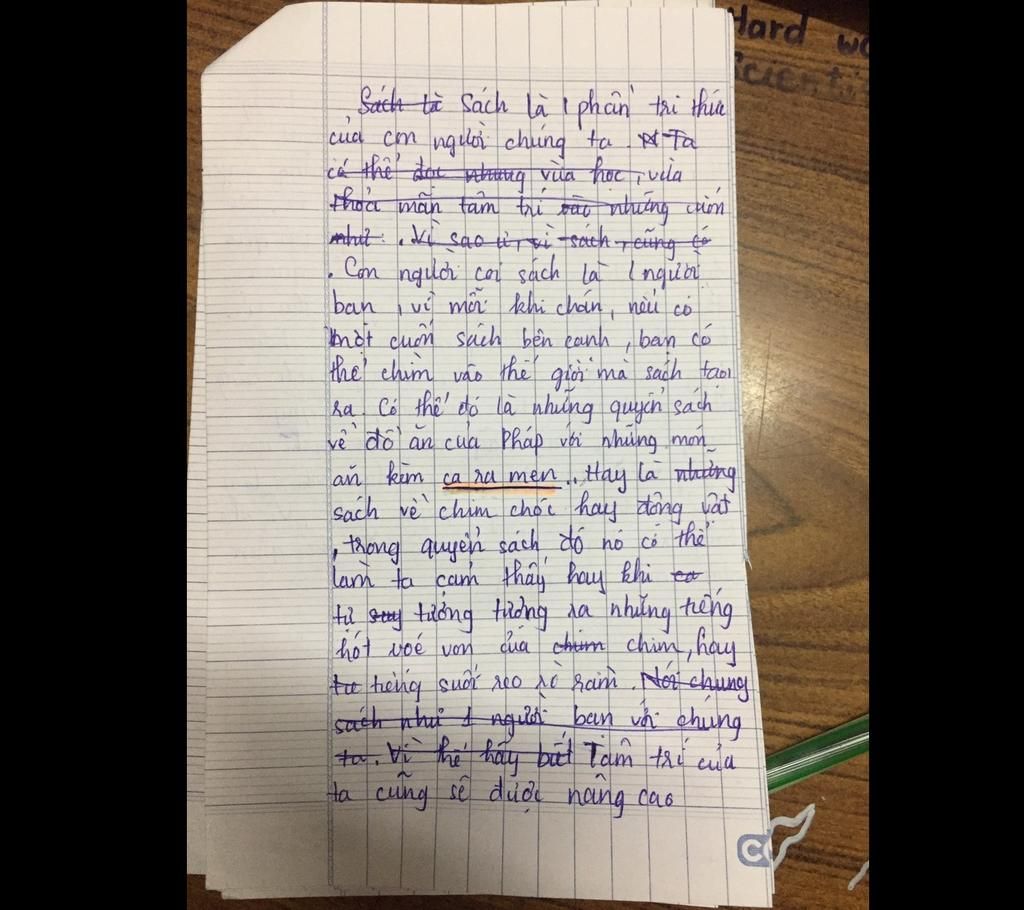 Hard wo
scienti
Sách là Sách là 1 phần tri thức
của con người chúng ta. Ta
có thể đọc nhưng vừa học, vừa
thoả mãn tâm trí vào những cuốn
như: . Vì sao ư, vì sách, cũng có
. Con người coi sách là 1 người
bạn, vì mỗi khi chán, nếu có
một cuốn sách bên cạnh, bạn có
thể chìm vào thế giới mà sách tạo
ra. Có thể đó là những quyển sách
về đồ ăn của Pháp với những món
ăn kèm ca ra men... Hay là những
sách về chim chóc hay động vật
, trong quyển sách đó nó có thể
làm ta cảm thấy hay khi ca
tự suy tưởng tưởng ra những tiếng
hót voé von của chim chim, hay
tư tiếng suối reo rò rầm. Nói chung
sách như 1 người bạn với chúng
ta. Vì thế hãy biết Tâm trí của
ta cũng sẽ được nâng cao